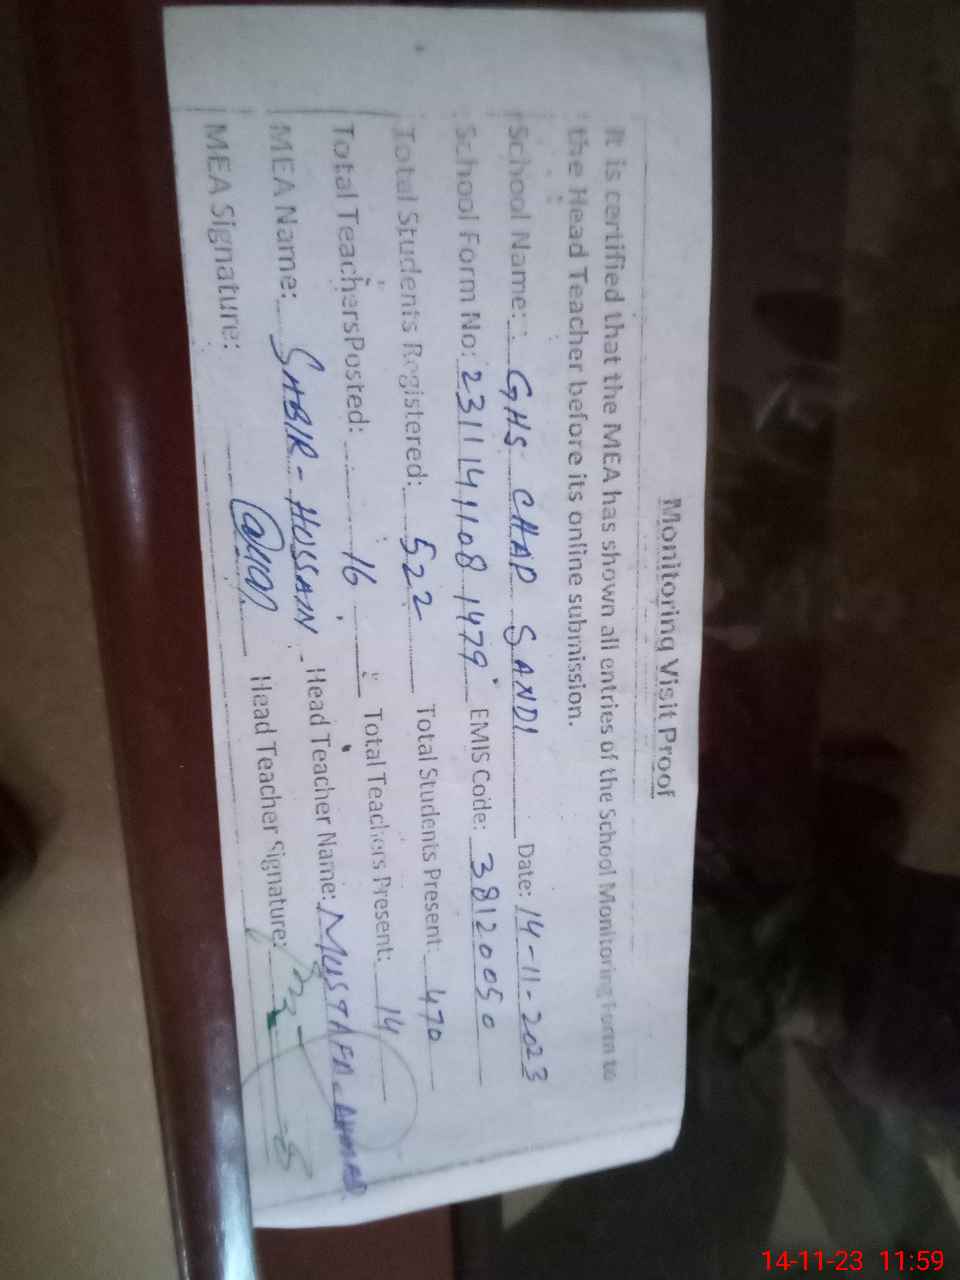 Monitoring Visit Proof
It is certified that the MEA has shown all entries of the School Monitoring Form to
the Head Teacher before its online submission.
School Name: GHS CHAP SANDI Date: 14-11-2023
School Form No: 231114141081479 EMIS Code: 38120050
Total Students Registered: 522 Total Students Present: 470
Total TeachersPosted: 16 Total Teachers Present: 14
MEA Name: SABIR-HUSSAIN Head Teacher Name: MUSTAFA-AHMAD
MEA Signature: Head Teacher Signature:
14-11-23 11:59